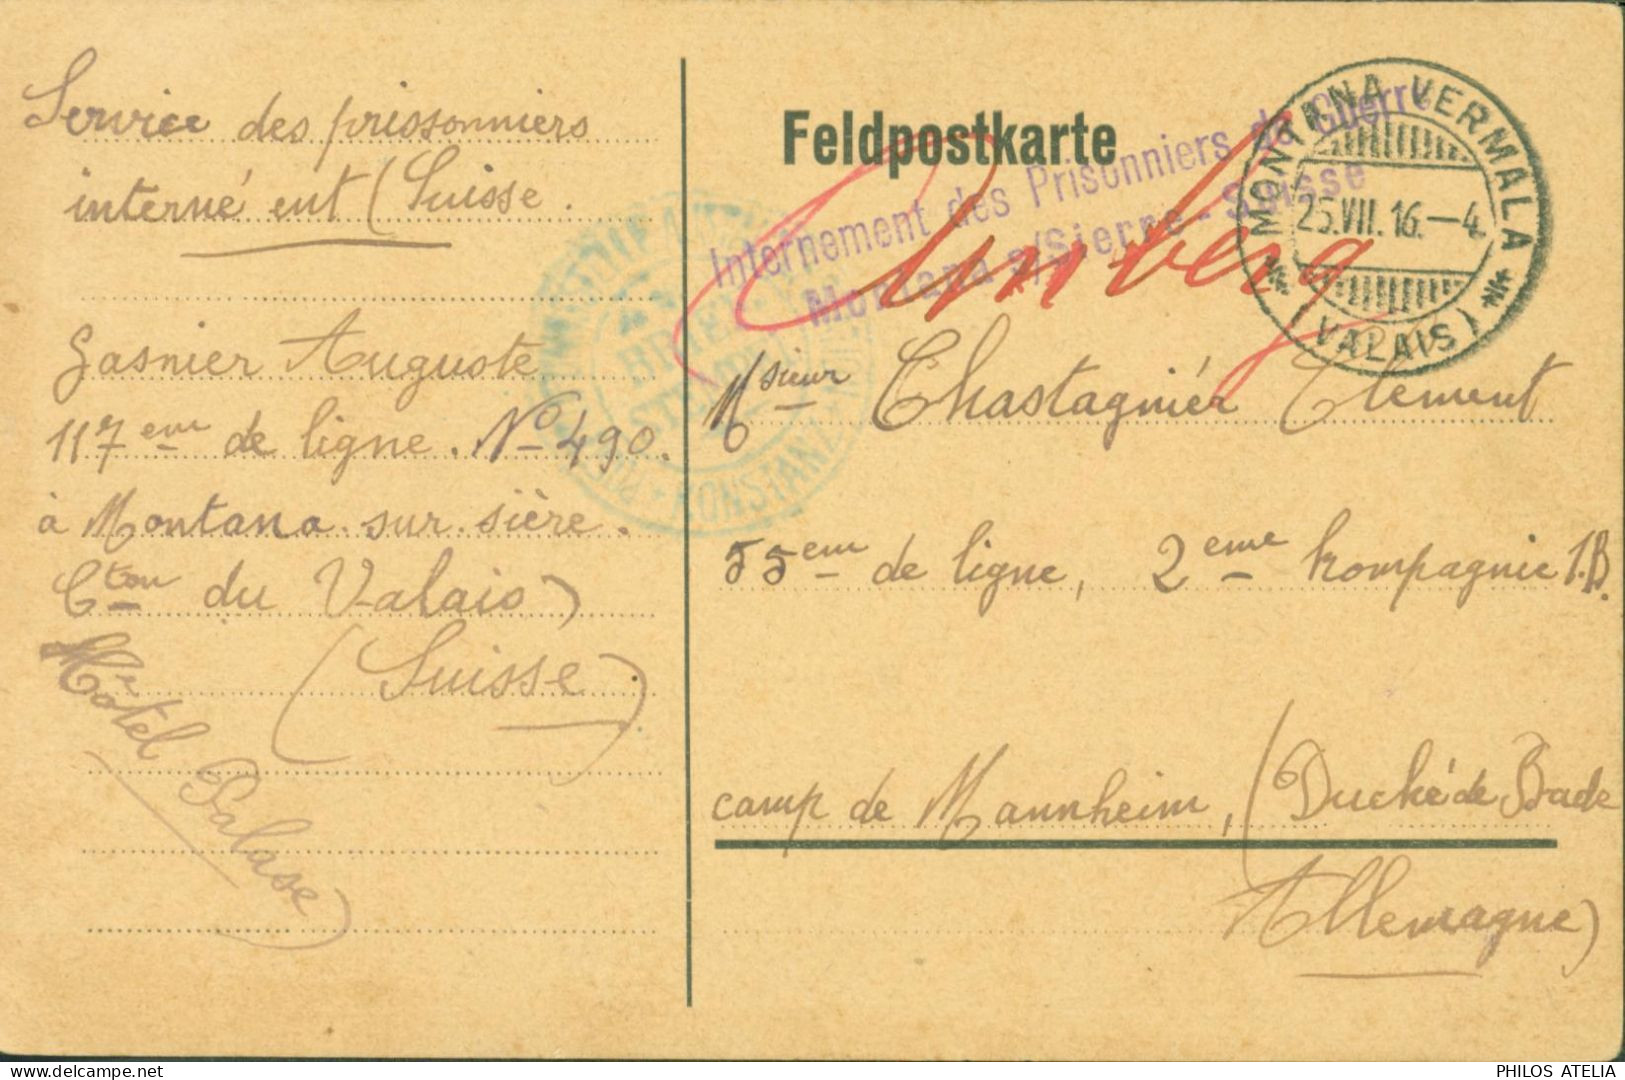 Service des prissonniers
interné ent (Suisse.
Gasnier Auguste
117eme de ligne. No 490.
à Montana sur sière.
Cton du Valais)
(Suisse)
Hôtel Palase)
Feldpostkarte
Internement des Prisonniers de Guerre
Montana s/Sierre - Suisse
Amberg
MONTANA-VERMALA
25.VII.16.-4.
(VALAIS)
KONSTANZ
Msieur Chastagniér Clement
55eme de ligne, 2eme kompagnie 1.B.
camp de Mannheim, (Duché de Bade
Allemagne)
PHILOS ATELIA